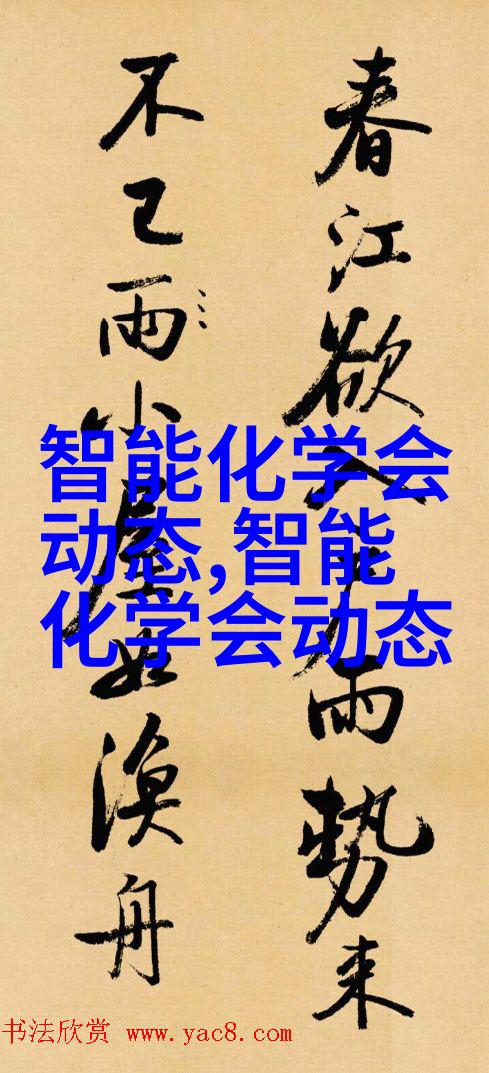 春江欲入户雨勢来
不已雨小屋如漁舟
智能化学会
动态,智能
化学会动态
书法欣赏 www.yac8.com